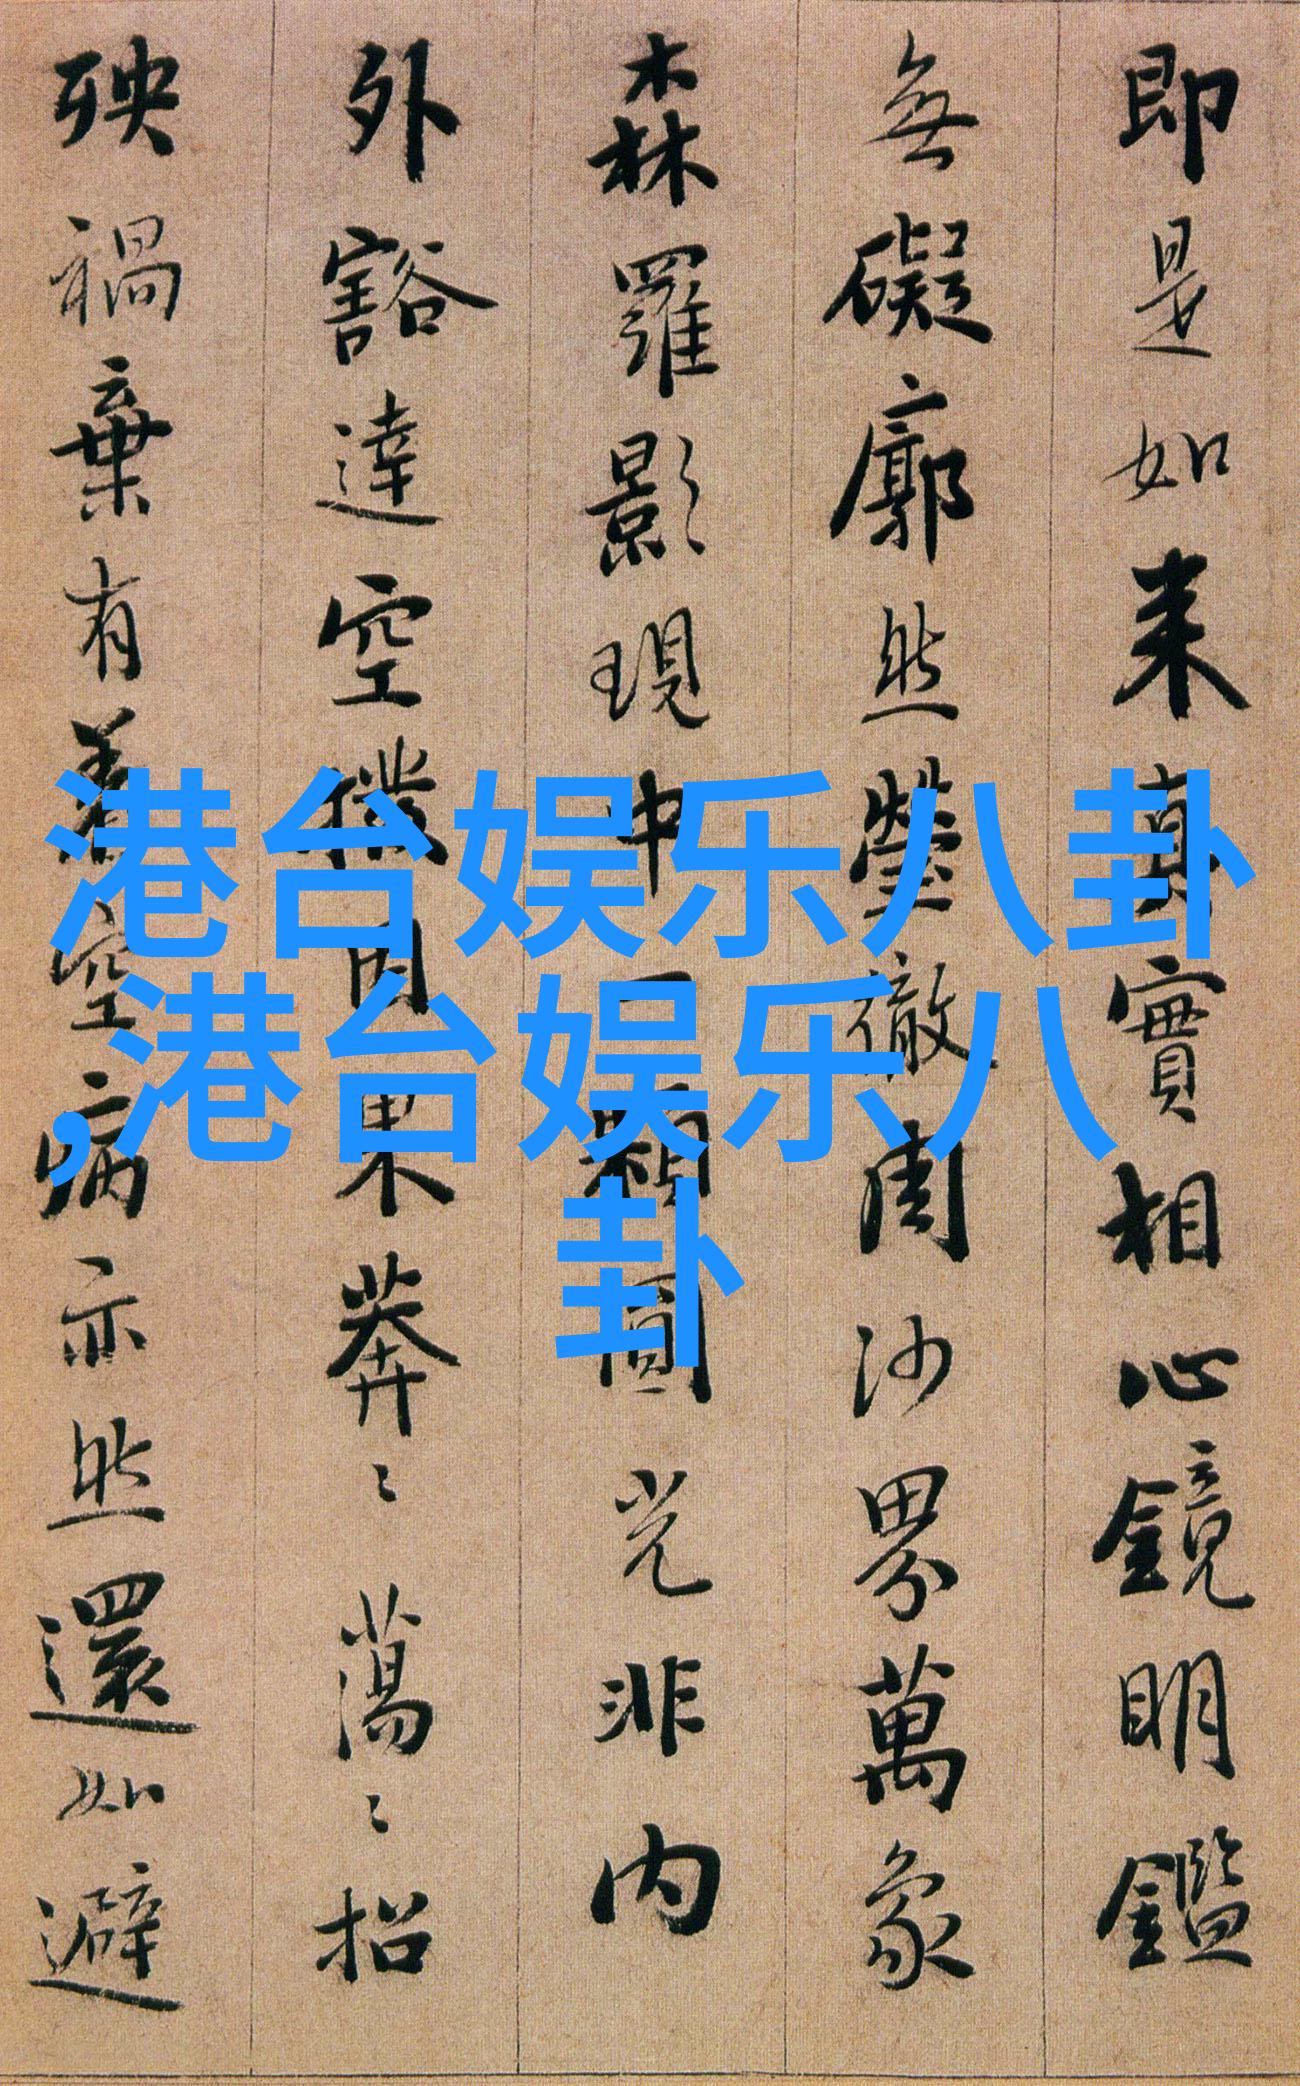 即是如来真實相心鏡明鑑
無礙廓然瑩徹周沙界萬象
森羅影現中一顆圓光非内
外豁達空撥因果莽〻蕩〻招
殃禍棄有著空病亦然還如避
港台娱乐八卦
,港台娱乐八
卦